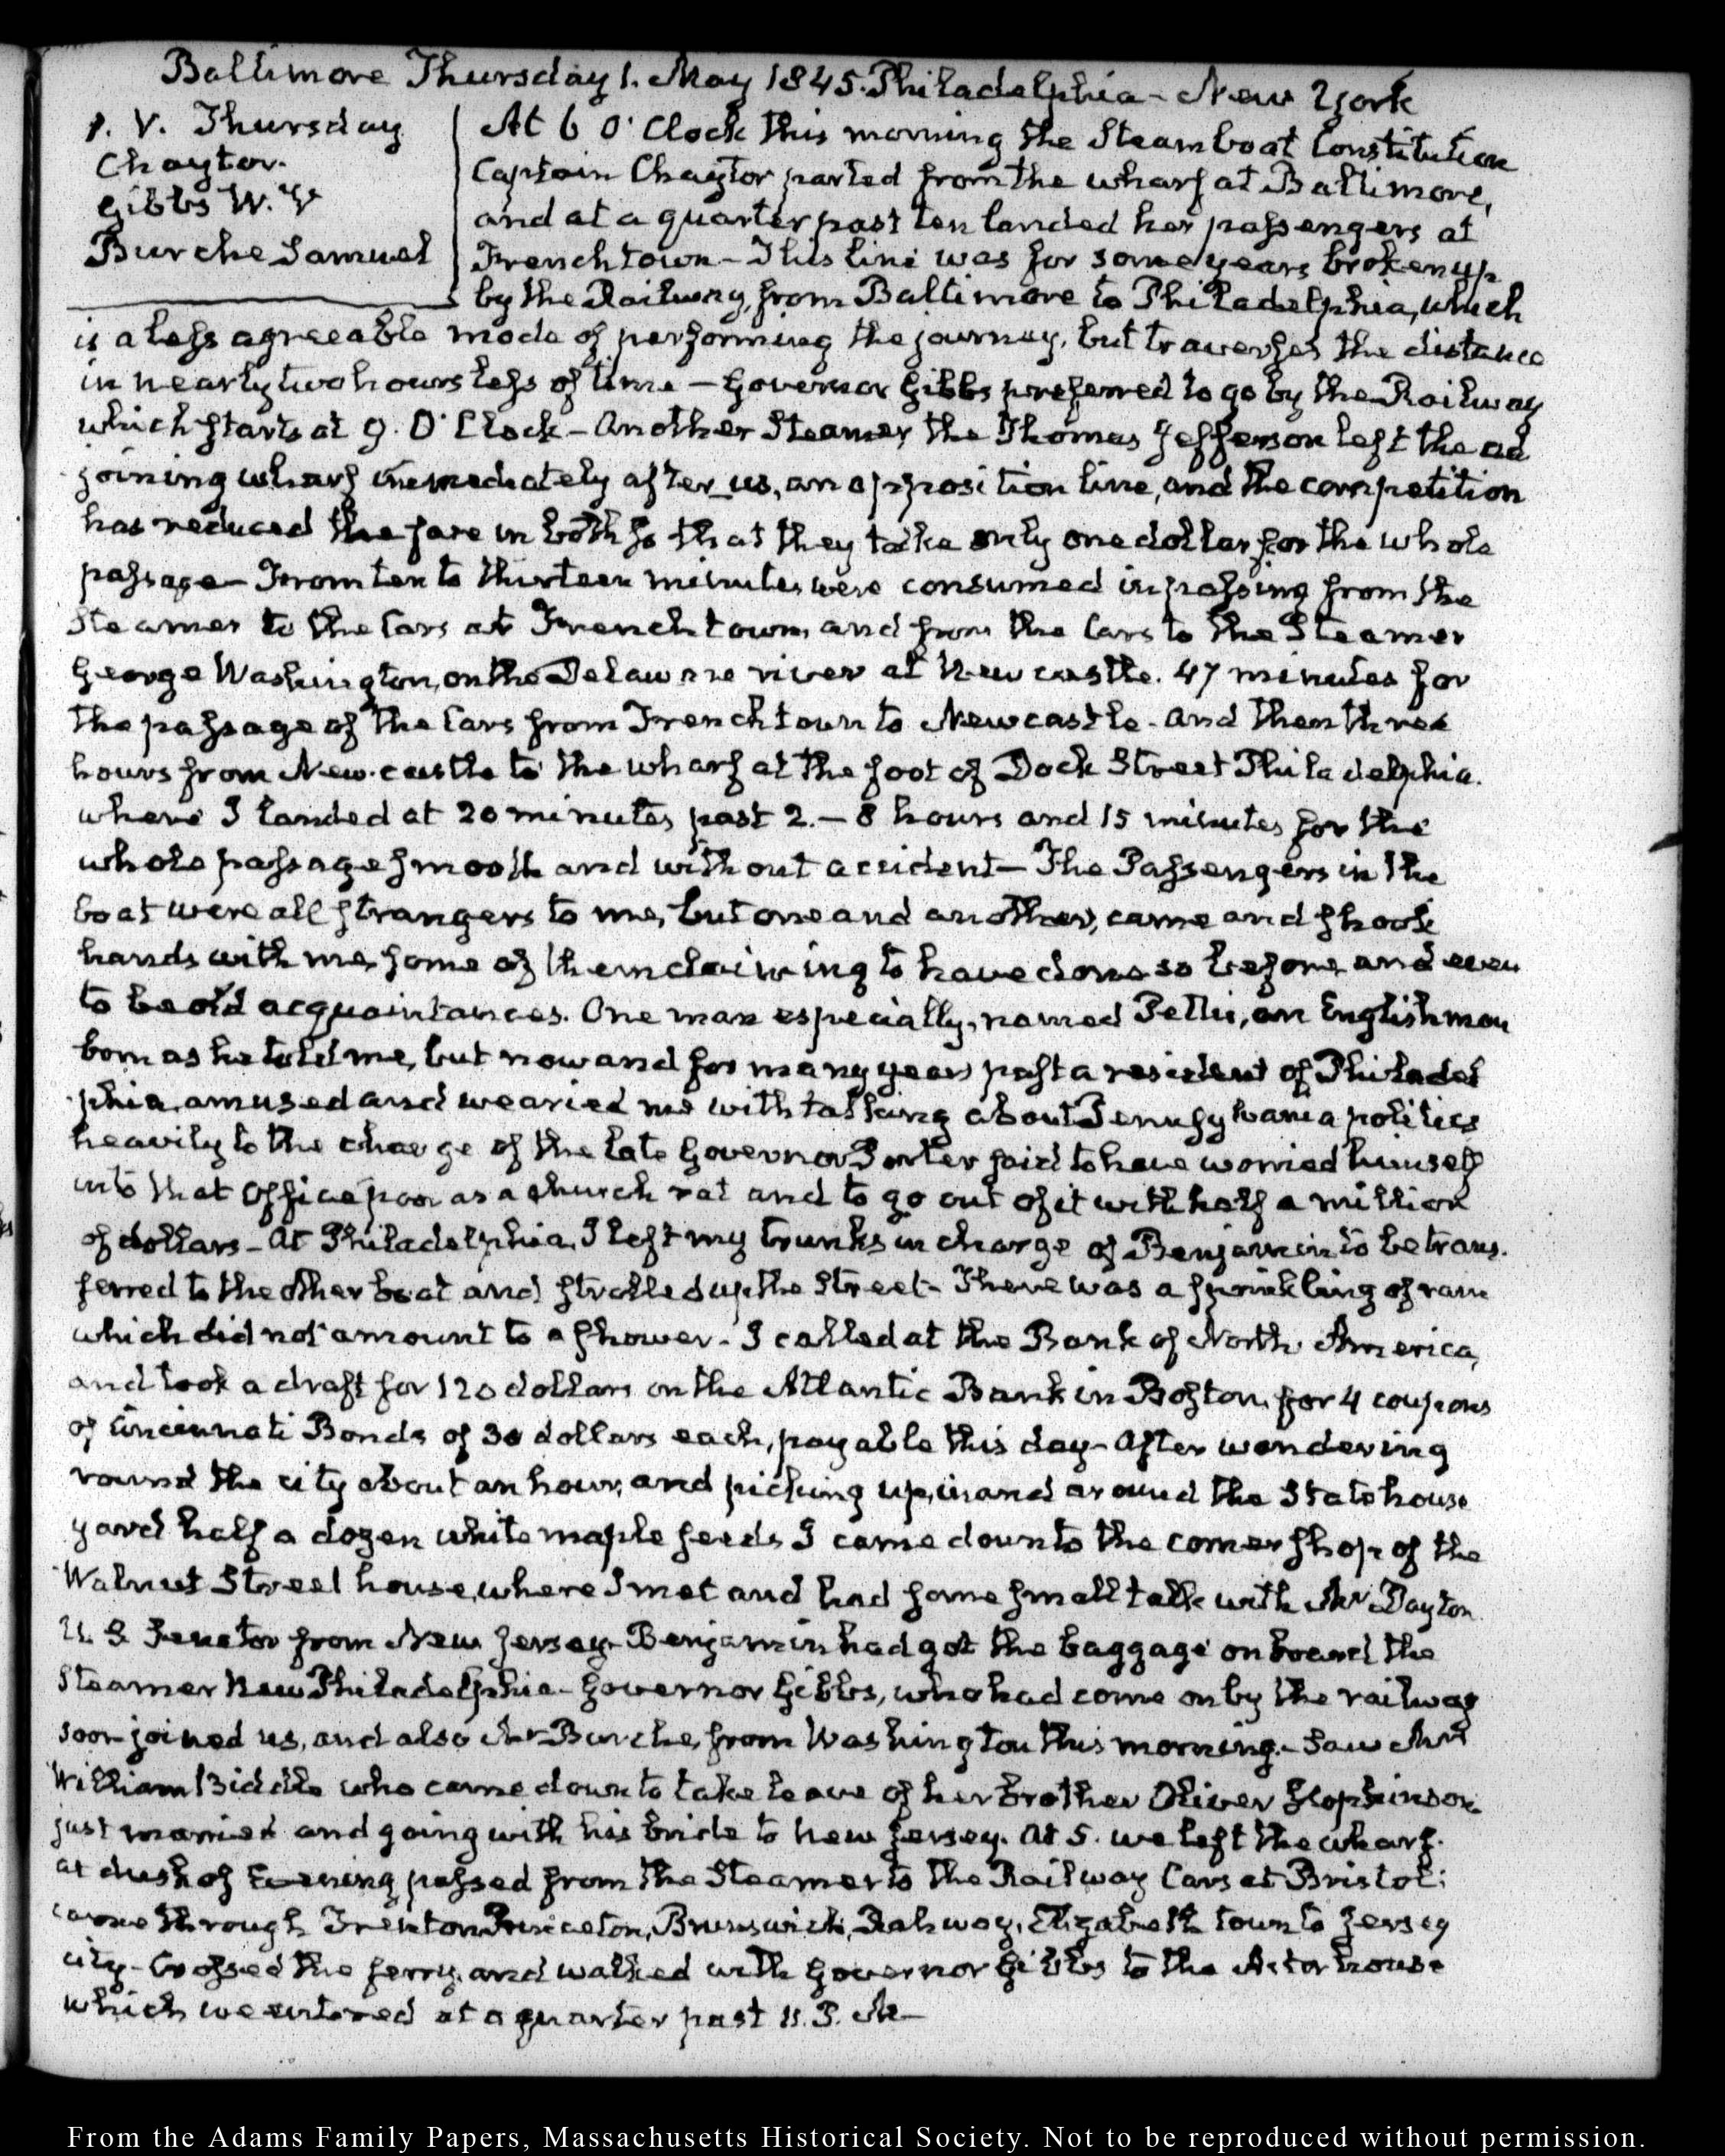 Baltimore Thursday 1. May 1845. Philadelphia - New York
1. V. Thursday
Chaytor.
Gibbs W. 
Burche Samuel
At 6 O'Clock this morning the Steamboat Constitution
Captain Chaytor parted from the wharf at Baltimore,
and at a quarter past ten landed her passengers at
Frenchtown - This line was for some years broken up
by the Railway, from Baltimore to Philadelphia, which
is a less agreeable mode of performing the journey, but traverses the distance
in nearly two hours less of time - Governor Gibbs preferred to go by the Railway
which starts at 9. O'Clock - Another Steamer, the Thomas Jefferson left the ad
joining wharf immediately after us, an opposition line, and the competition
has reduced the fare in both so that they take only one dollar for the whole
passage - From ten to thirteen minutes were consumed in passing from the
Steamer to the Cars at Frenchtown, and from the Cars to the Steamer
George Washington, on the Delaware river at Newcastle. 47 minutes for
the passage of the Cars from Frenchtown to Newcastle - and then three
hours from New-castle to the wharf at the foot of Dock Street Philadelphia.
where I landed at 20 minutes past 2. - 8 hours and 15 minutes for the
whole passage smooth and without accident - The Passengers in the
boat were all strangers to me, but one and another, came and shook
hands with me, some of them claiming to have done so before, and even
to be old acquaintances. One man especially, named Pettit, an Englishman
born as he told me, but now and for many years past a resident of Philadel
phia, amused and wearied me with talking about Pennsylvania politics
heavily to the charge of the late Governor Porter said to have wormed himself
into that Office poor as a church rat and to go out of it with half a million
of dollars - At Philadelphia, I left my trunks in charge of Benjamin to be trans.
ferred to the other boat and strolled up the Street - There was a sprinkling of rain
which did not amount to a shower - I called at the Bank of North America,
and took a draft for 120 dollars on the Atlantic Bank in Boston, for 4 coupons
of Cincinnati Bonds of 30 dollars each, payable this day - After wandering
round the city about an hour, and picking up, in and around the State house
yard half a dozen white maple seeds I came down to the corner shop of the
Walnut Street house, where I met and had some small talk with Mr Dayton
U. S. Senator from New Jersey - Benjamin had got the baggage on board the
Steamer New Philadelphia - Governor Gibbs, who had come on by the railway
soon joined us, and also Mr Burche, from Washington this morning. - Saw Mrs
William Biddle who came down to take leave of her brother Oliver Hopkinson
just married and going with his bride to New Jersey. At 5. we left the wharf.
at dusk of Evening passed from the Steamer to the Railway Cars at Bristol:
came through Trenton, Princeton, Brunswick, Rahway, Elizabeth town to Jersey
city - Crossed the ferry, and walked with Governor Gibbs to the Astor house
which we entered at a quarter past 11. P. M -
From the Adams Family Papers, Massachusetts Historical Society. Not to be reproduced without permission.